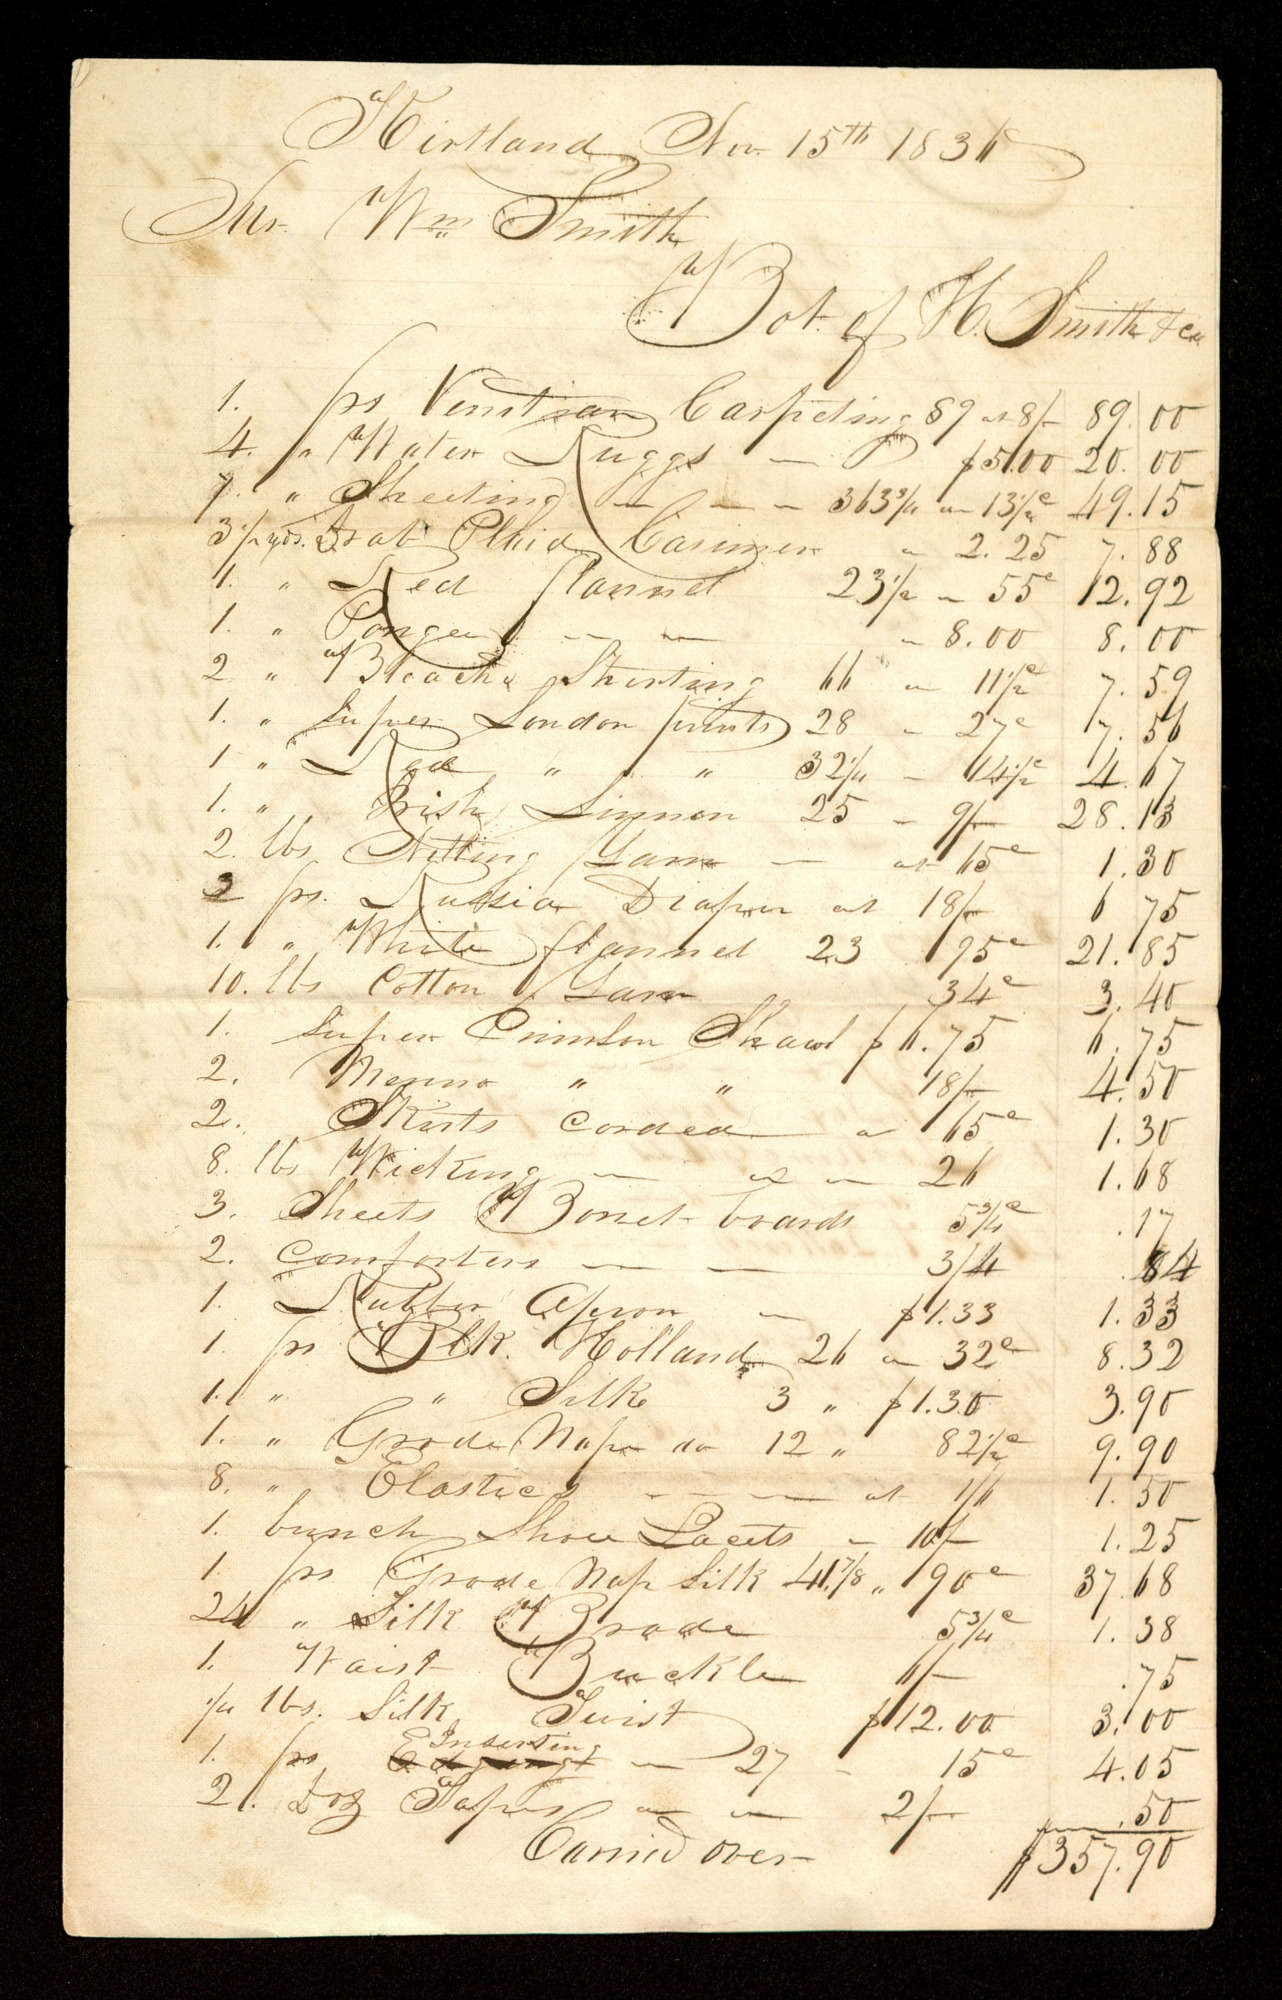 Kirtland Nov. 15th 1836
Mr. Wm Smith
Bot. of H. Smith & co
1. ps Venitian Carpeting 89 at 8/- 89.00
4. " Water Ruggs — $5.00 20.00
7. " Sheeting — — — 363 3/4 — 13 1/2c 49.15
3 1/2 yds. Drab Plaid Casimer — 2.25 7.88
1. " Red flannel 23 1/2 — 55c 12.92
1. " Pongee — — — 8.00 8.00
2 " Bleachd Shirting 66 — 11 1/2c 7.59
1. " Super London prints 28 — 27c 7.56
1 " Red " " 32 1/4 — 14 1/2c 4.67
1. " Irish Linnen 25 — 9/- 28.13
2. lbs Nitting Yarn — at 65c 1.30
3 ps. Russia Diaper at 18/- 6 75
1. " White flannel 23 95c 21.85
10. lbs Cotton Yarn 34c 3.40
1. Super Crimson Shawl $6.75 6.75
2. Merino " " 18/- 4.50
2. Skirts corded — 65c 1.30
8. lbs Wicking — at — 26 1.68
3. Sheets Bonnet boards 5 3/4c .17
2. Comforters — — 3/4 .84
1. Rubber Apron — $1.33 1.33
1. ps Blk. Holland 26 — 32c 8.32
1. " " Silk 3 " $1.30 3.90
1. " Grode Nap do 12 " 82 1/2c 9.90
8. " Elastics — — — at 1/6 1.50
1. bunch Shoe Lacets — 10/- 1.25
1. ps Grode Nap Silk 41 7/8 " 90c 37.68
24 " Silk Brade 5 3/4c 1.38
1. Waist Buckle 6/- .75
1/4 lbs. Silk Twist $12.00 3.00
Inserting
1. ps Edging — 27 — 15c 4.05
2. Doz Tapes — — 2/- .50
Carried over $357.90